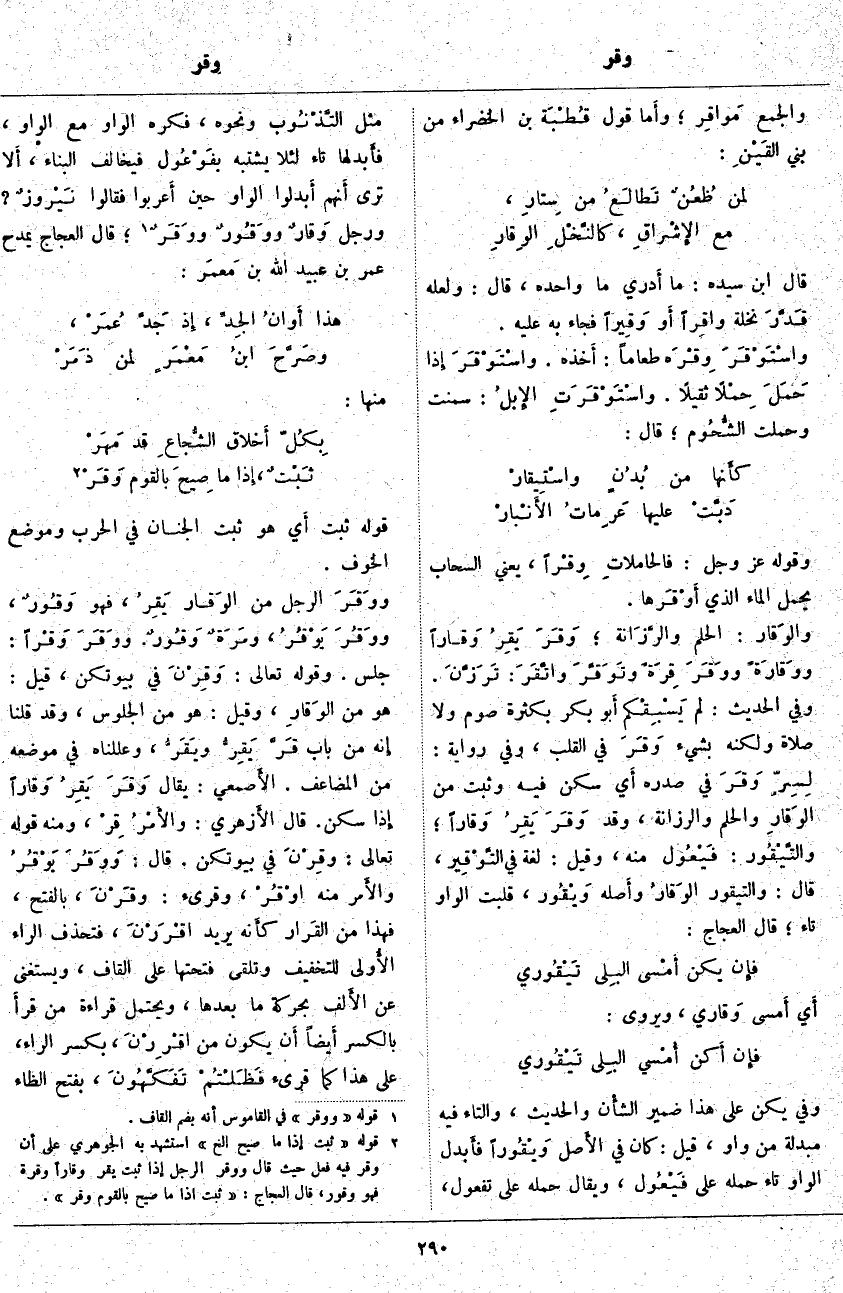 وقر
وقر
والجمع مَواقِر ؛ وأما قول قُطْبَة بن الخضراء من
بني القَيْنِ :
لمن ظُعُنٌ تَطالَعُ من سِتارِ ،
مع الإشْراقِ ، كالنَّخْلِ الوِقارِ
قال ابن سيده : ما أدري ما واحده ، قال : ولعله
قَدَّرَ نخلة واقِراً أو وَقِيراً فجاء به عليه .
واسْتَوْقَرَ وِقْرَه طعاماً : أخذه . واسْتَوْقَرَ إذا
حَمَلَ حِمْلًا ثقيلًا . واسْتَوْقَرَتِ الإبلُ : سمنت
وحملت الشُّحُوم ؛ قال :
كأَنها من بُدُنٍ واسْتِيقارْ
دَبَّتْ عليها عَرِماتُ الأَنْبارْ
وقوله عز وجل : فالحاملاتِ وِقْراً ، يعني السحاب
يحمل الماء الذي أَوْقَرها .
والوَقار : الحلم والرَّزانة ؛ وَقَرَ يَقِرُ وَقاراً
ووَقارَةً ووَقَرَ قِرَةً وتَوَقَّرَ واتَّقَرَ : تَرَزَّنَ .
وفي الحديث : لم يَسْبِقْكم أبو بكر بكثرة صوم ولا
صلاة ولكنه بشيء وَقَرَ في القلب ، وفي رواية :
لِسِرٍّ وَقَرَ في صدره أي سكن فيه وثبت من
الوَقارِ والحلم والرزانة ، وقد وَقَرَ يَقِرُ وَقاراً ؛
والتَّيْقُور : فَيْعُول منه ، وقيل : لغة في التَّوْقِير ،
قال : والتيقور الوَقارُ وأصله وَيْقُور ، قلبت الواو
تاء ؛ قال العجاج :
فإن يكن أَمْسى البِلى تَيْقُوري
أي أمسى وَقاري ، ويروى :
فإن أكن أُمْسي البِلى تَيْقُوري
وفي يكن على هذا ضمير الشأن والحديث ، والتاء فيه
مبدلة من واو ، قيل : كان في الأصل وَيْقُوراً فأبدل
الواو تاء حمله على فَيْعُول ، ويقال حمله على تفعول،
مثل التَّذْنُوب ونحوه ، فكره الواو مع الواو ،
فأبدلها تاء لئلا يشتبه بفَوْعُول فيخالف البناء ، ألا
ترى أنهم أبدلوا الواو حين أعربوا فقالوا نَيْرُوزٌ ؟
ورجل وَقارٌ ووَقُورٌ ووَقَرٌ١ ؛ قال العجاج يمدح
عمر بن عبيد الله بن مَعمَر :
هذا أوانُ الجِدِّ ، إذ جَدَّ عُمَرْ ،
وصَرَّحَ ابنُ مَعْمَرٍ لمن ذَمَرْ
منها :
بِكُلِّ أخلاق الشُّجاعِ قد مَهَرْ
ثَبْتٌ ، إذا ما صِيحَ بالقوم وَقَرْ٢
قوله ثبت أي هو ثبت الجنان في الحرب وموضع
الخوف .
ووَقَرَ الرجل من الوَقار يَقِرُ ، فهو وَقُورٌ ،
ووَقُرَ يَوْقُرُ ، ومَرَةٌ وَقُورٌ. ووَقَرَ وَقْراً :
جلس . وقوله تعالى : وَقِرْنَ في بيوتكن ، قيل :
هو من الوَقارِ ، وقيل : هو من الجلوس ، وقد قلنا
إنه من باب قَرَّ يَقِرُّ ويَقَرُّ ، وعللناه في موضعه
من المضاعف . الأَصمعي : يقال وَقَرَ يَقِرُ وَقاراً
إذا سكن. قال الأزهري : والأَمْرُ قِرْ ، ومنه قوله
تعالى : وقِرْنَ في بيوتكن . قال : ووَقُرَ يَوْقُرُ
والأمر منه اوْقُرْ ، وقرىء : وقَرْنَ ، بالفتح ،
فهذا من القَرار كأنه يريد اقْرَرْنَ ، فتحذف الراء
الأُولى للتخفيف وتلقى فتحتها على القاف ، ويستغنى
عن الألف بحركة ما بعدها ، ويحتمل قراءة من قرأ
بالكسر أيضاً أن يكون من اقْرِرْنَ ، بكسر الراء،
على هذا كما قرىء فَظَلْتُمْ تَفَكَّهُونَ ، بفتح الظاء
١ قوله « ووقر » في القاموس أنه بضم القاف .
٢ قوله « ثبت إذا ما صيح الخ » استشهد به الجوهري على أن
وقر فيه فعل حيث قال ووقر الرجل إذا ثبت يقر وقاراً وقرة
فهو وقور، قال العجاج : « ثبت اذا ما صيح بالقوم وقر » .
٢٩٠